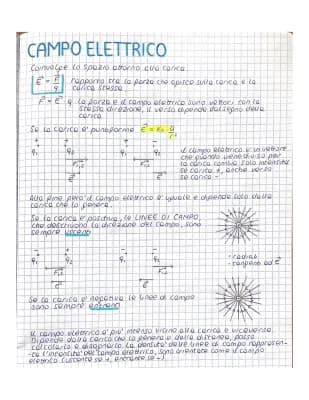 CAMPO ELETTRICO
Coinvolge lo spazio attorno alla carica.
E = F/q rapporto tra la forza che agisce sulla carica e la
carica stessa
F = E · q la forza e il campo elettrico sono vettori con la
stessa direzione, il verso dipende dal segno della
carica
Se la carica è puntiforme E = K₀ · Q/r²
+ + + - il campo elettrico è un vettore
q₁ q₂ q₁ q₂ che quando viene diviso per
la carica cambia solo intensità
se carica +, anche verso
se carica -
E E
Alla fine però il campo elettrico è uguale e dipende solo dalla
carica che lo genera.
Se la carica è positiva, le LINEE DI CAMPO,
che descrivono la direzione del campo, sono
sempre uscenti
- + - -
q₁ q₂ q₁ q₂ - radiali
- tangenti ad E
E E
Se la carica è negativa le linee di campo
sono sempre entranti
Il campo elettrico è più intenso vicino alla carica e viceversa.
Dipende dalla carica che lo genera e dalla distanza, posso
calcolarlo e disegnarlo. La densità delle linee di campo rappresen-
-ta l'intensità del campo elettrico, sono orientate come il campo
elettrico (uscente se +, entrante se -)